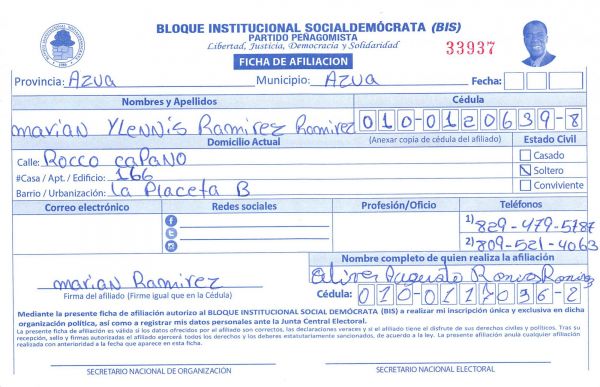 BLOQUE INSTITUCIONAL SOCIALDEMÓCRATA (BIS)
PARTIDO PEÑAGOMISTA
Libertad, Justicia, Democracia y Solidaridad
33937
FICHA DE AFILIACION
Provincia: AZUA Municipio: AZUA Fecha:
Nombres y Apellidos Cédula
marian YLENNIS Ramirez Ramirez 010-0120639-8
Domicilio Actual (Anexar copia de cédula del afiliado) Estado Civil
Calle: ROCCO CAPANO Casado
#Casa / Apt. / Edificio: 166 Soltero
Barrio / Urbanización: La Placeta B Conviviente
Correo electrónico Redes sociales Profesión/Oficio Teléfonos
1) 829-479-5787
2) 809-521-4063
Nombre completo de quien realiza la afiliación
marian Ramirez
Firma del afiliado (Firme igual que en la Cédula) Cédula: 010-0117036-2
Mediante la presente ficha de afiliación autorizo al BLOQUE INSTITUCIONAL SOCIAL DEMÓCRATA (BIS) a realizar mi inscripción única y exclusiva en dicha
organización política, así como a registrar mis datos personales ante la Junta Central Electoral.
La presente ficha de afiliación es válida si los datos ofrecidos por el afiliado son correctos, las declaraciones veraces y si el afiliado tiene el disfrute de sus derechos civiles y políticos. Tras su
recepción, sello y firmas autorizadas el afiliado ejercerá todos los derechos y los deberes estatutariamente sancionados, de acuerdo a la ley. La presente afiliación anula cualquier afiliación
realizada con anterioridad a la fecha que aparece en esta ficha.
SECRETARIO NACIONAL DE ORGANIZACIÓN SECRETARIO NACIONAL ELECTORAL